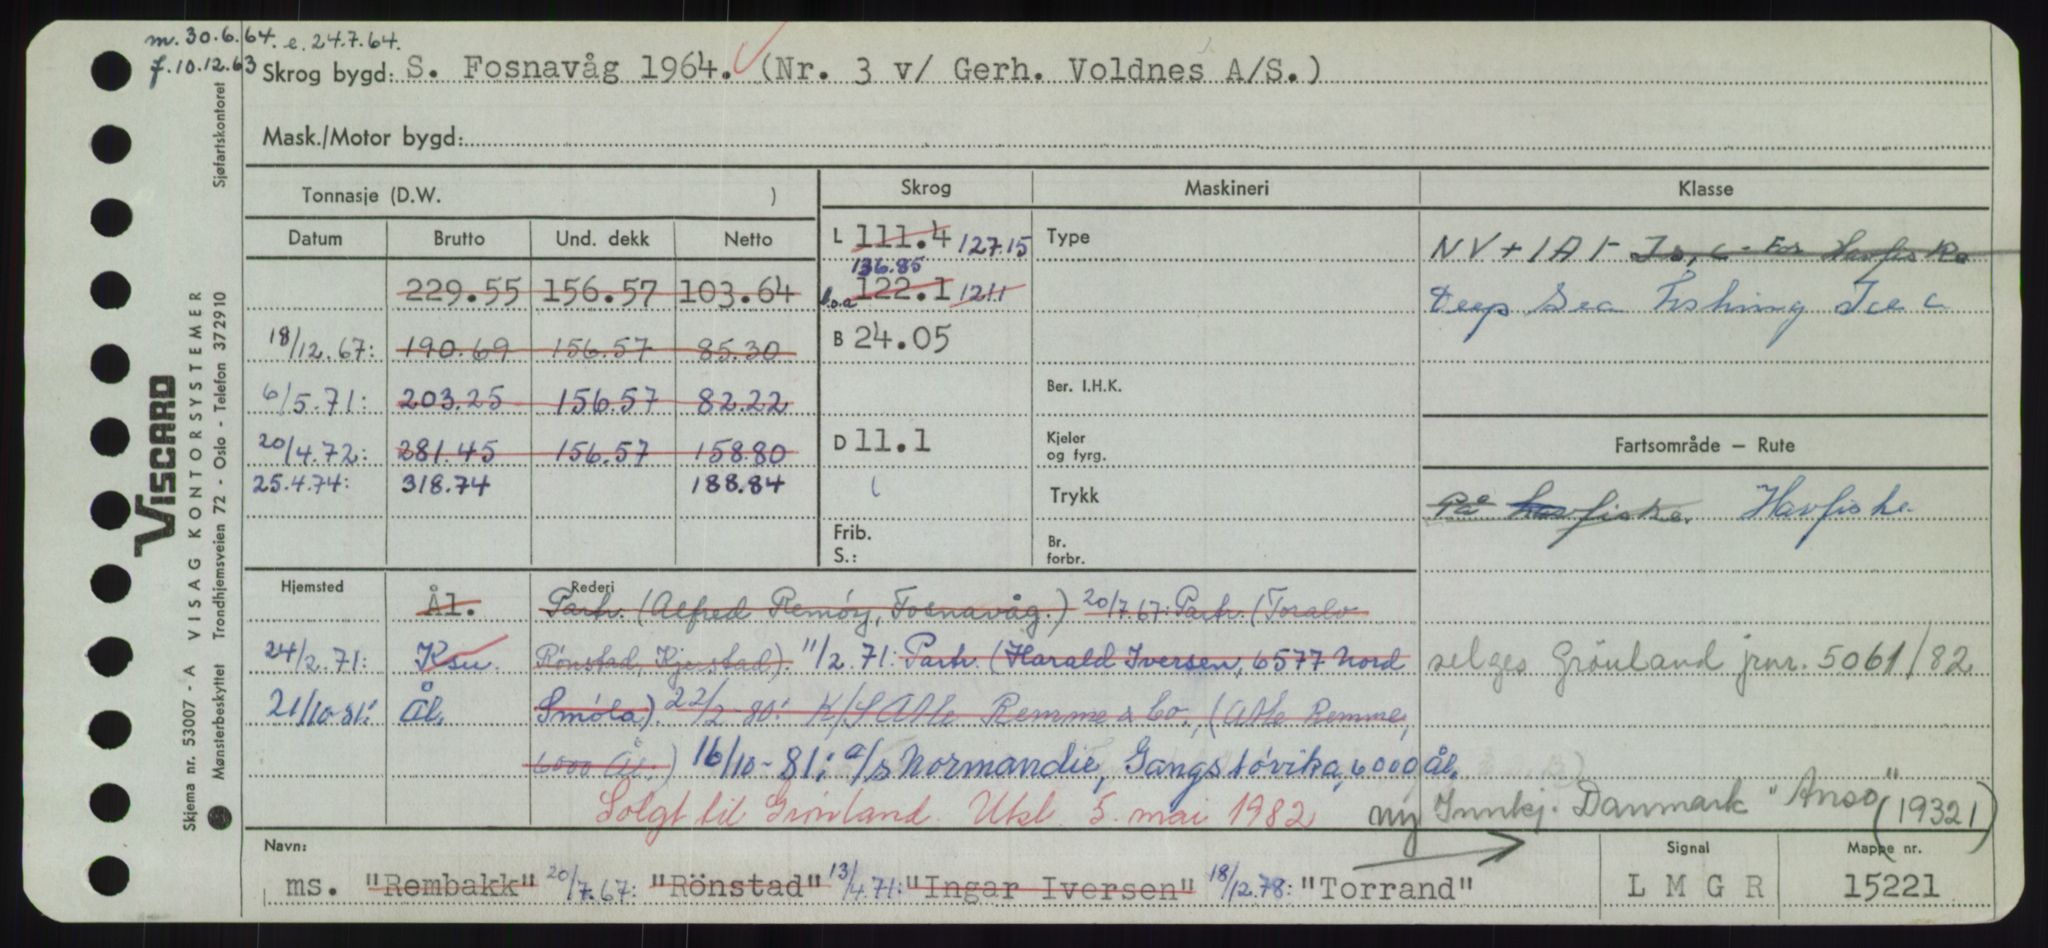 m. 30.6.64. e. 24.7.64.
f. 10.12.63 Skrog bygd: S. Fosnavåg 1964. (Nr. 3 v/ Gerh. Voldnes A/S.)
Mask./Motor bygd:
Tonnasje (D.W. ) Skrog Maskineri Klasse
Datum Brutto Und. dekk Netto L 111.4 127.15 Type NV + 1A1- Is, C- For Havfiske
136.85
229.55 156.57 103.64 l.o.a 122.1 121.1 Deep Sea Fishing Ice C
18/12.67: 190.69 156.57 85.30 B 24.05
6/5.71: 203.25 156.57 82.22 Ber. I.H.K.
20/4.72: 281.45 156.57 158.80 D 11.1 Kjeler og fyrg. Fartsområde – Rute
25.4.74: 318.74 188.84 Trykk På havfiske. Havfiske
Frib. S.: Br. forbr.
Hjemsted Rederi
Ål. Partr. (Alfred Remøy, Fosnavåg.) 20/7.67: Partr. (Toralv
24/2.71: Ksu. Rønstad, Kjerstad). 11/2.71: Partr. (Harald Iversen, 6577 Nord selges Grönland jrnr. 5061/82
21/10-81: Ål. Smøla). 22/2-80: K/S Atle Remme & Co., (Atle Remme,
6000 Ål.) 16/10-81: a/s Normandie, Gangstøvika, 6000 Ål.
Solgt til Grønland. Utsl. 5. mai 1982 ny Innkj. Danmark "Anso" (19321)
Navn: Signal Mappe nr.
ms. "Rembakk" 20/7.67: "Rönstad" 13/4.71: "Ingar Iversen" 18/12.78: "Torrand" L M G R 15221
VISCARD
VISAG KONTORSYSTEMER
Skjema nr. 53007 - A
Mønsterbeskyttet Trondhjemsveien 72 - Oslo - Telefon 372910 Sjøfartskontoret